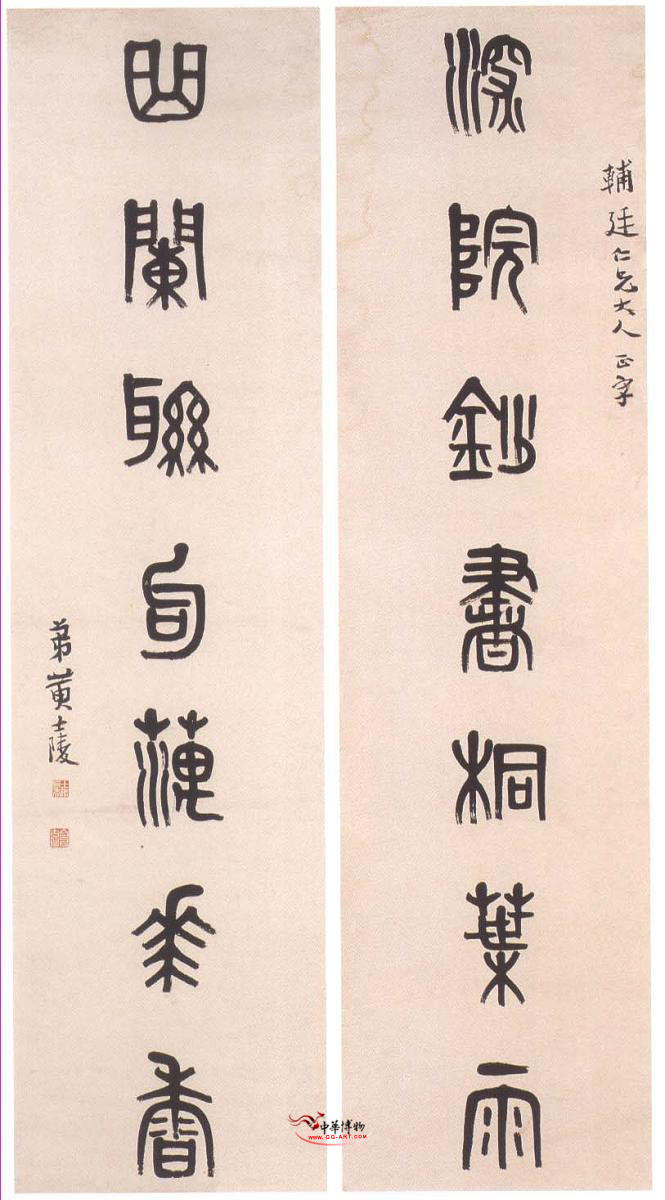 輔廷仁兄大人正字
深院鈔書桐葉雨
曲闌聯句蓮華香
弟黃士陵
中華博物
WWW.GG-ART.COM